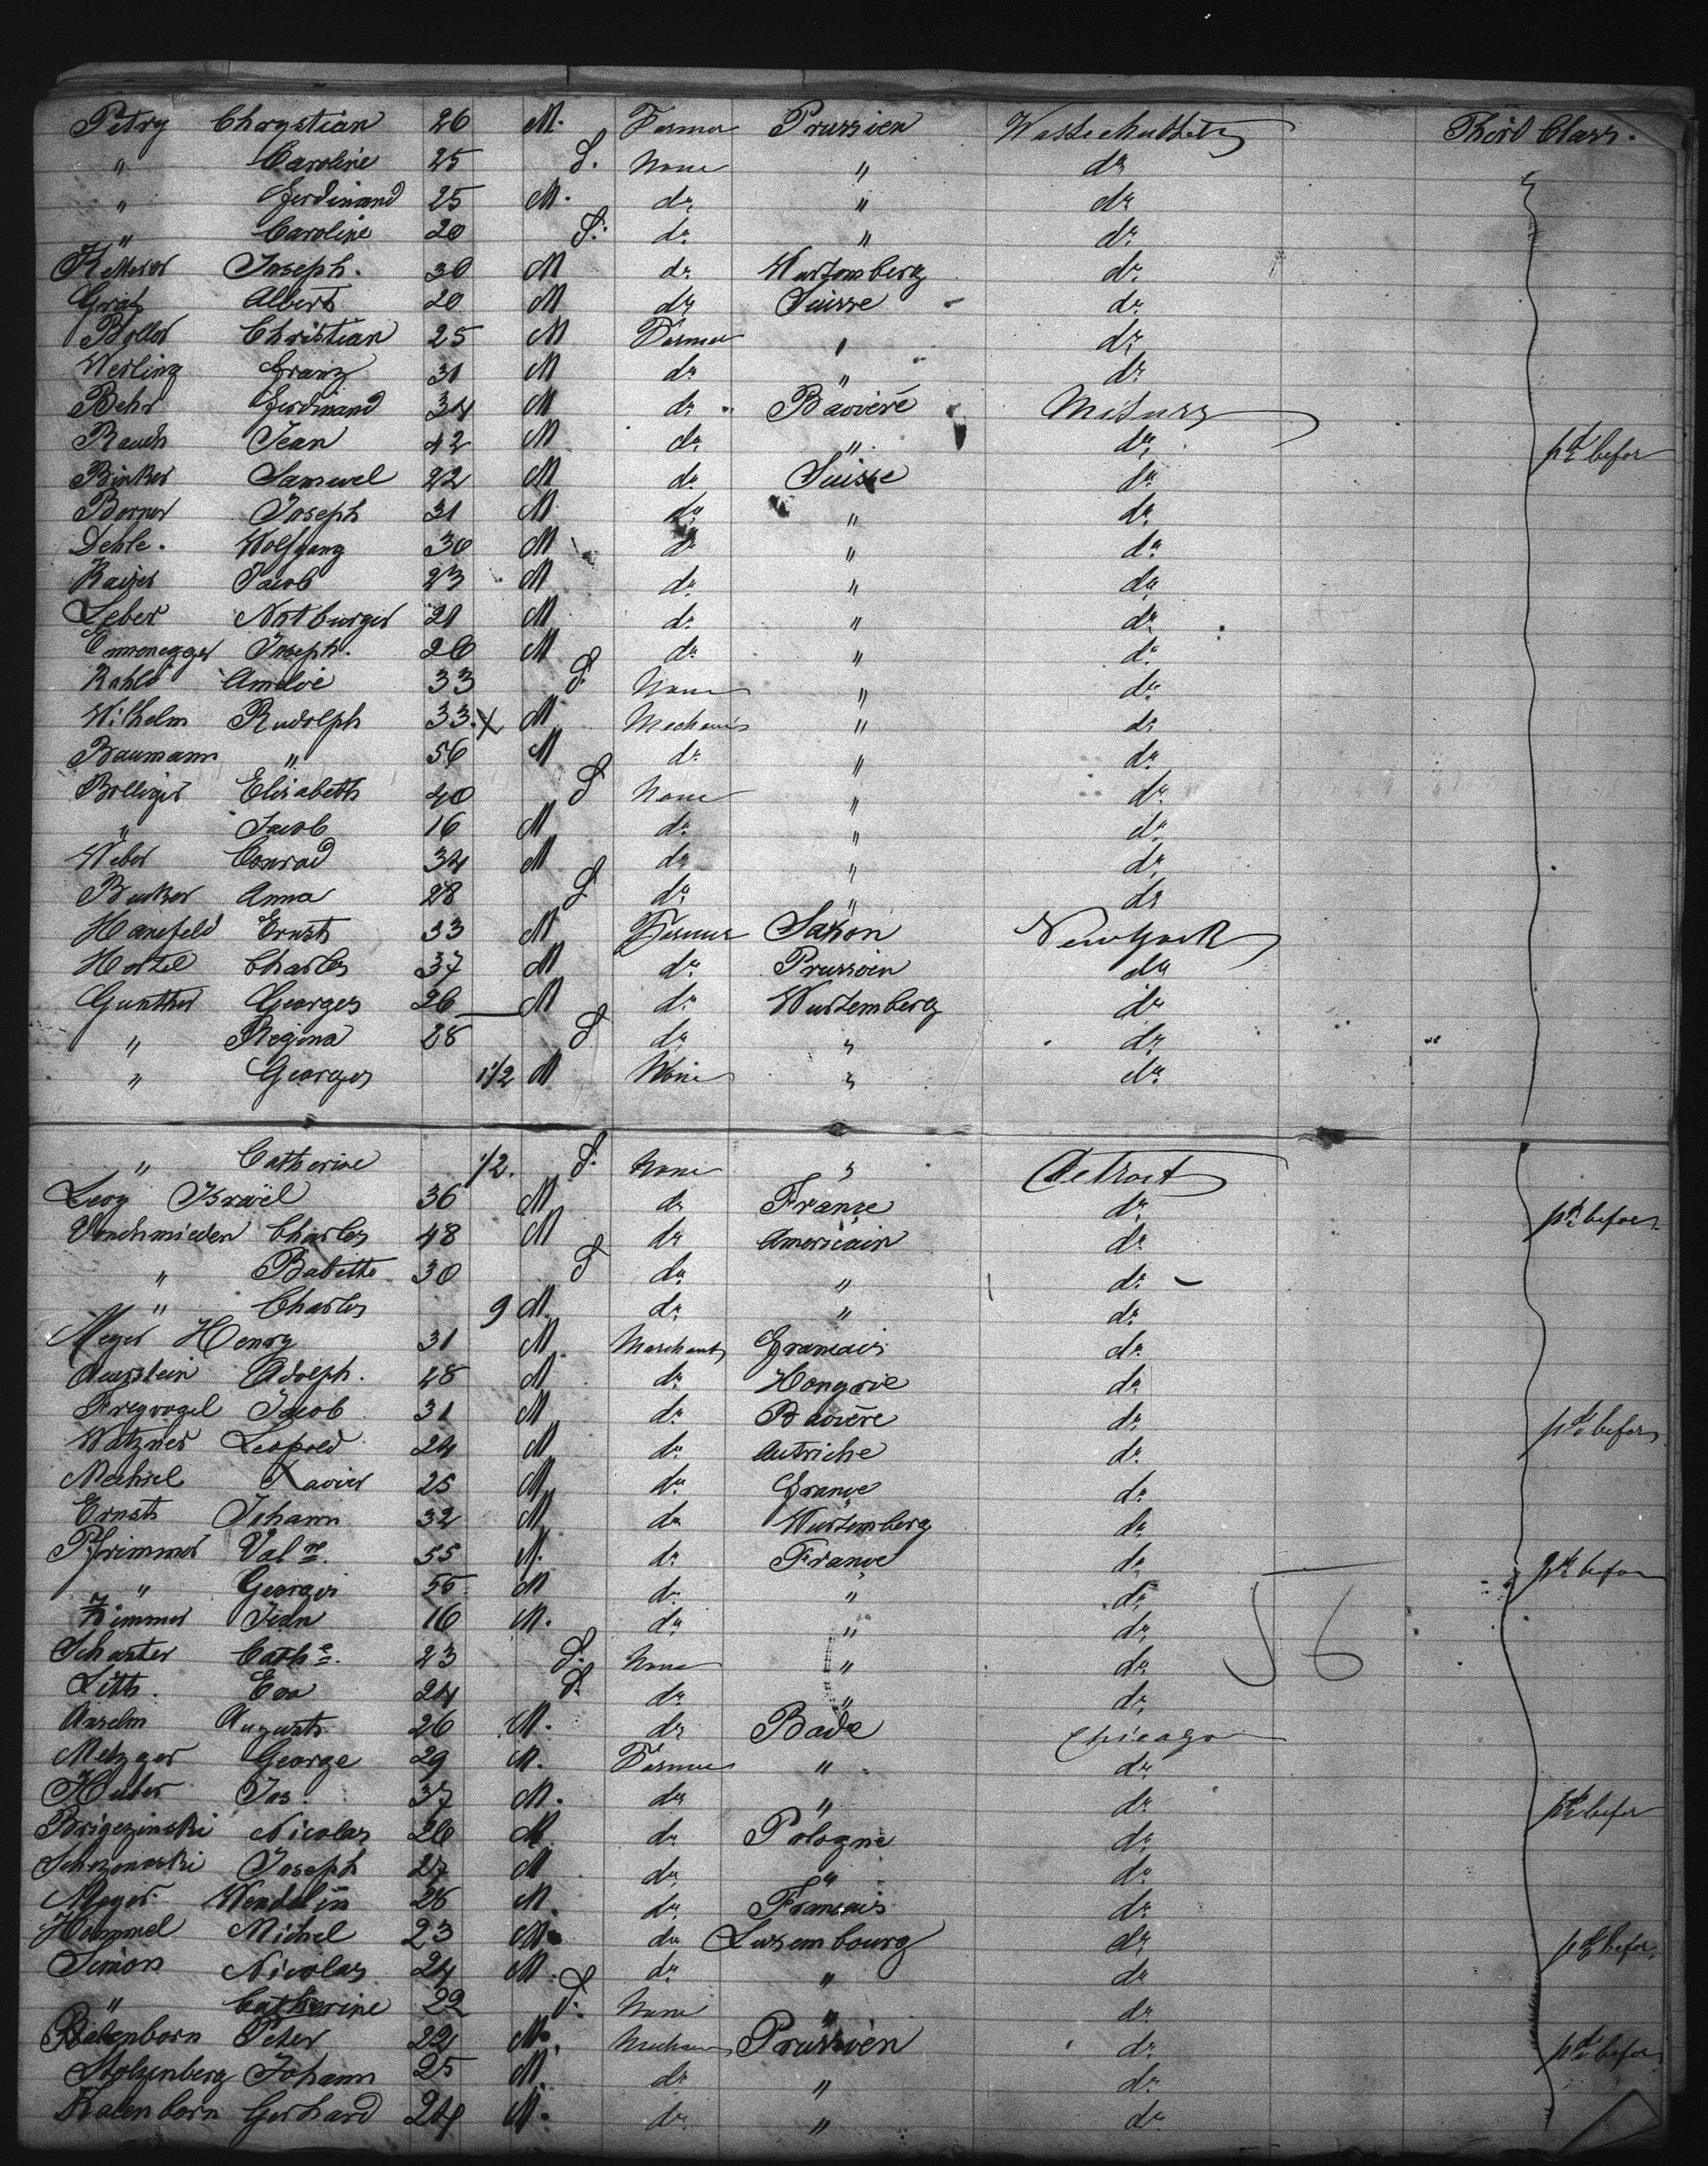 Petry Chrystian 26 M. Farmer Prussien Third Class.
" Caroline 25 F. None " do
" Ferdinand 25 M. do " do
" Caroline 20 F. do " do
Joseph. 30 M do Wurtemberg do
Graf Albert 20 M do Suisse do
Boller Christian 25 M Farmer " do
Werling Franz 31 M do " do
Behr Ferdinand 34 M do Baviere
Rauch Jean 42 M do " do pd befor
Binker Samuel 22 M do Suisse do
Borner Joseph 31 M do " do
Dehle. Wolfgang 30 M do " do
Kaiser Jacob 23 M do " do
Leber Notburger 21 M do " do
Emmenegger Joseph. 26 M do " do
Kahle Amelie 33 F. None " do
Wilhelm Rudolph 33 X M Mechanic " do
Baumann " 56 M do " do
Bolliger Elisabeth 40 F None " do
" Jacob 16 M do " do
Weber Conrad 34 M do " do
Anna 28 F do " do
Hanefeld Ernst 33 M Farmer Saxon New York
Hertel Charles 37 M do Prussien do
Gunther Georges 26 M do Wurtemberg do
" Regina 28 F do " do
" Georges 1 1/2 M None " do
" Catherine 1/2. F. None " Detroit
Levy Israël 36 M do France do pd befor
Vonschmieden Charles 48 M do Americain do
" Babette 30 F do " do
" Charles 9 M do " do
Meyer Henry 31 M. Marchant Francais do
Adolph. 48 M do Hongrie do
Freyvogel Jacob 31 M do Baviere do pd befor
Watzner Leopold 24 M do Autriche do
Xavier 25 M do France do
Ernst Johann 32 M do Wurtemberg do
Pfrimmer Val ne. 55 M. do France do pd befor
" Georges 56 M do " do
Zimmer Jean 16 M. do " do 56
Schuster Cath e. 23 F. None " do
Litth. Eva 24 F. do " do
Anselm August 26 M. do Bade Chicago
Metzger George 29 M. Farmer " do
Huber Jos. 37 M. do " do pd befor
Brigezinski Nicolas 26 M do Pologne do
Joseph 27 M do " do
Meyer. Wendelin 28 M. do Francais do
Hommel Michel 23 M. do Luxembourg do pd befor
Simon Nicolas 24 M. do " do
" Catherine 22 F. None " do
Peter 22 M. Mechan Prussien do pd befor
Stolzenberg Johann 25 M. do " do
Kalenborn Gerhard 24 M. do " do